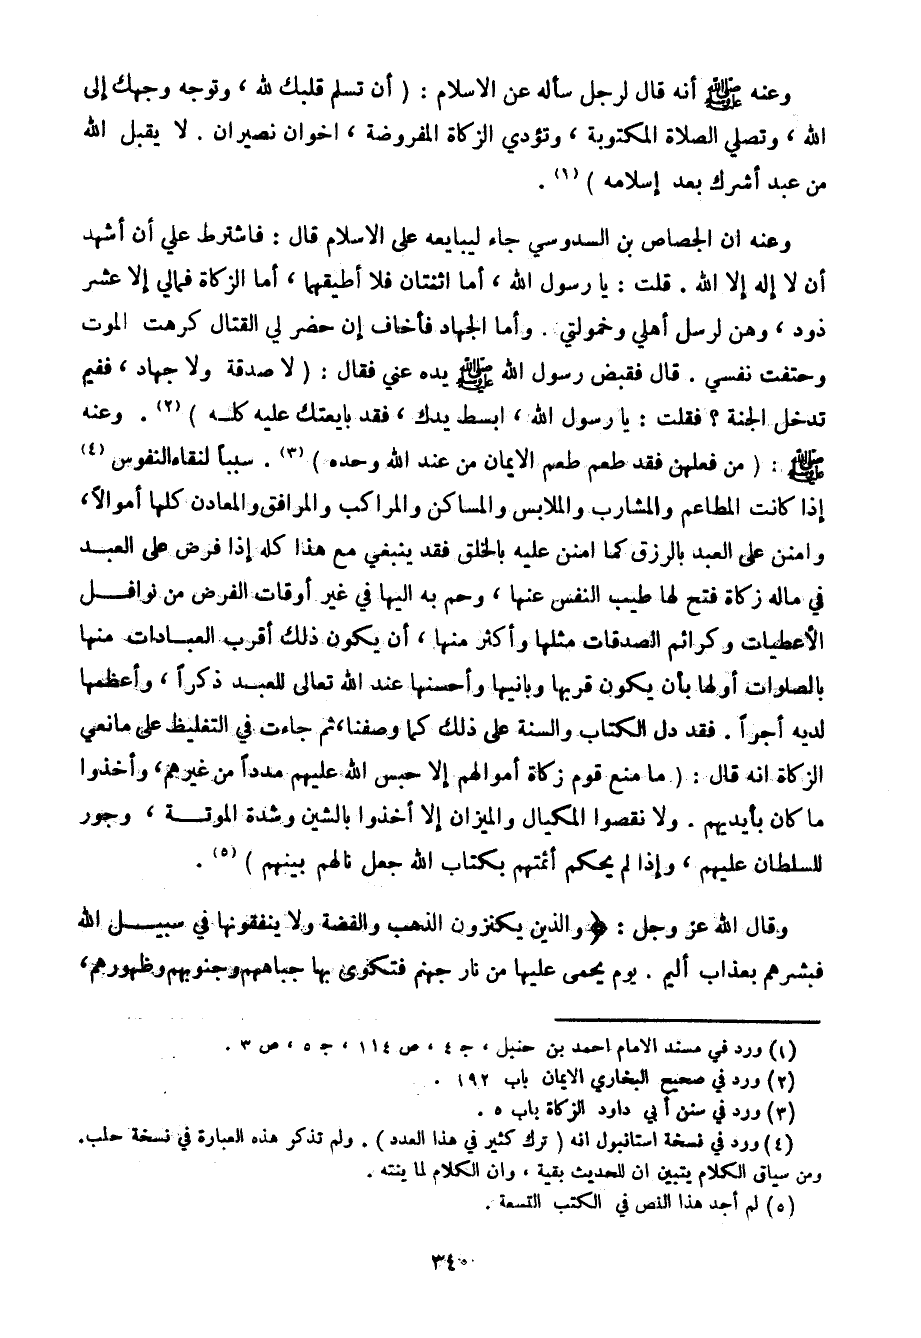 وعنه ﷺ أنه قال لرجل سأله عن الاسلام : ( أن تسلم قلبك لله ، وتوجه وجهك إلى
الله ، وتصلي الصلاة المكتوبة ، وتؤدي الزكاة المفروضة ، اخوان نصيران . لا يقبل الله
من عبد أشرك بعد إسلامه ) (١) .
وعنه ان الجصاص بن السدوسي جاء ليبايعه على الاسلام قال : فاشترط علي أن أشهد
أن لا إله إلا الله . قلت : يا رسول الله ، أما اثنتان فلا أطيقهما ، أما الزكاة فمالي إلا عشر
ذود ، وهن لرسل أهلي وخمولتي . وأما الجهاد فأخاف إن حضر لي القتال كرهت الموت
وحتفت نفسي . قال فقبض رسول الله ﷺ يده عني فقال : ( لا صدقة ولا جهاد ، ففيم
تدخل الجنة ؟ فقلت : يا رسول الله ، ابسط يدك ، فقد بايعتك عليه كله ) (٢) . وعنه
ﷺ : ( من فعلهن فقد طعم طعم الايمان من عند الله وحده ) (٣) . سبباً لنقاء النفوس (٤)
إذا كانت المطاعم والمشارب والملابس والمساكن والمراكب والمرافق والمعادن كلها أموالاً ،
وامتن على العبد بالرزق كما امتن عليه بالخلق فقد ينبغي مع هذا كله إذا فرض على العبد
في ماله زكاة فتح لها طيب النفس عنها ، وحم به اليها في غير أوقات الفرض من نوافل
الأعطيات وكرائم الصدقات مثلها وأكثر منها ، أن يكون ذلك أقرب العبادات منها
بالصلوات أولها بأن يكون قربها وبانيها وأحسنها عند الله تعالى للعبد ذكراً ، وأعظمها
لديه أجراً . فقد دل الكتاب والسنة على ذلك كما وصفنا ، ثم جاءت في التغليظ على مانعي
الزكاة انه قال : ( ما منع قوم زكاة أموالهم إلا حبس الله عليهم مدداً من غيرهم ، وأخذوا
ما كان بأيديهم . ولا نقصوا المكيال والميزان إلا أخذوا بالشين وشدة الموتة ، وجور
للسلطان عليهم ، وإذا لم يحكم أئمتهم بكتاب الله جعل نالهم بينهم ) (٥) .
وقال الله عز وجل : ﴿ والذين يكنزون الذهب والفضة ولا ينفقونها في سبيل الله
فبشرهم بعذاب أليم . يوم يحمى عليها من نار جهنم فتكوى بها جباههم وجنوبهم وظهورهم ،
(١) ورد في مسند الامام احمد بن حنبل ، جـ ٤ ، ص ١١٤ ، جـ ٥ ، ص ٣ .
(٢) ورد في صحيح البخاري الايمان باب ١٩٢ .
(٣) ورد في سنن أبي داود الزكاة باب ٥ .
(٤) ورد في نسخة استانبول انه ( ترك كثير في هذا العدد ) . ولم تذكر هذه العبارة في نسخة حلب .
ومن سياق الكلام يتبين ان للحديث بقية ، وان الكلام لما ينته .
(٥) لم أجد هذا النص في الكتب التسعة .
٣٤٠